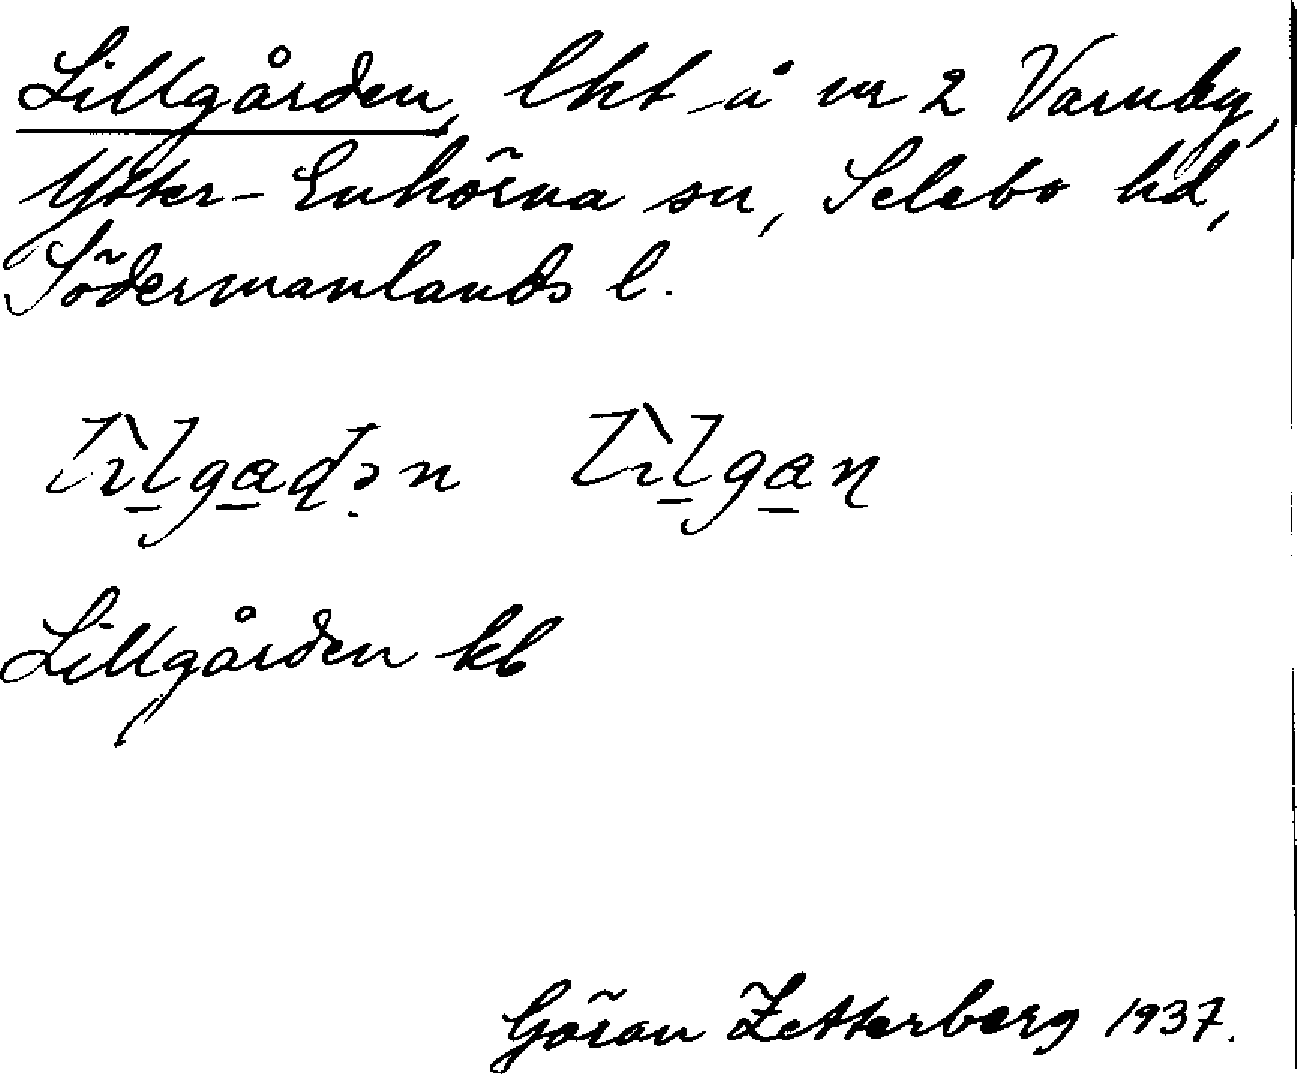 Lillgården, lht å nr 2 Varnby,
Ytter-Enhörna sn, Selebo hd,
Södermanlands l.
Lillgården kb
Göran Zetterberg 1937.